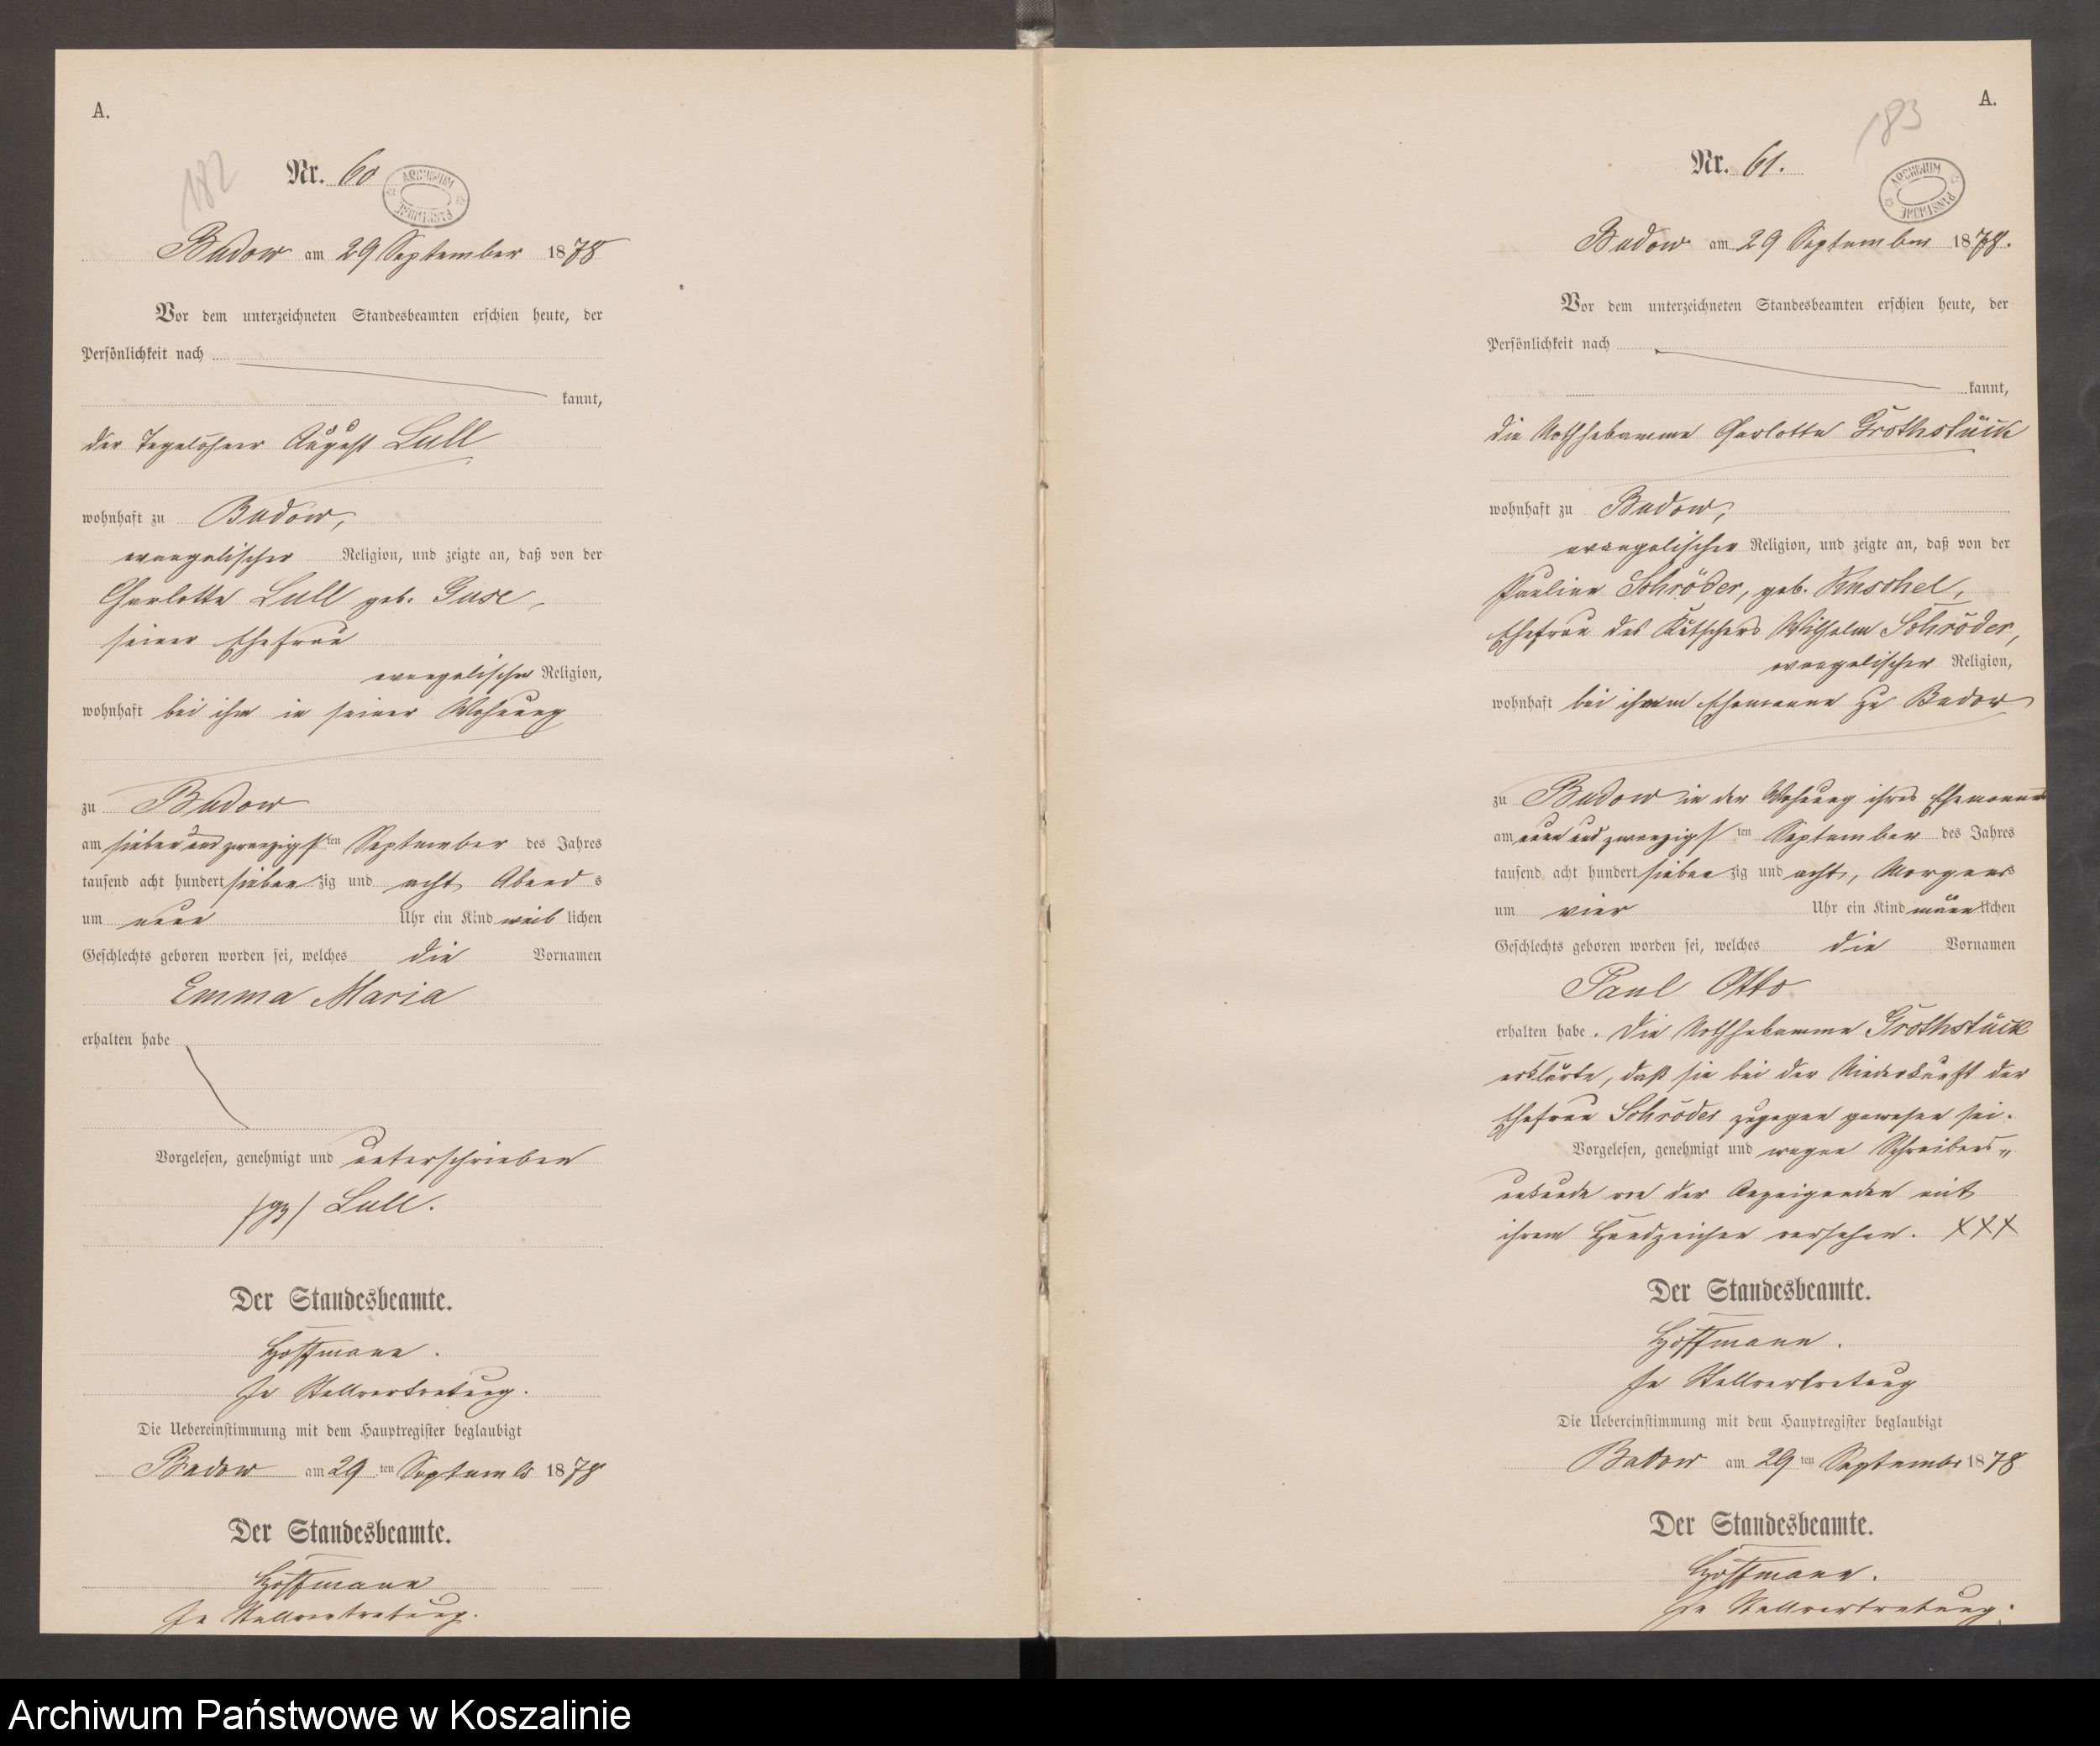 A.
182
Nr. 60
ARCHIWUM PAŃSTWOWE
Budow am 29 September 1878
Vor dem unterzeichneten Standesbeamten erschien heute, der
Persönlichkeit nach
kannt,
der Tagelöhner August Lull
wohnhaft zu Budow,
evangelischer Religion, und zeigte an, daß von der
Charlotte Lull geb. Guse,
seiner Ehefrau
evangelischer Religion,
wohnhaft bei ihm in seiner Wohnung
zu Budow
am sieben und zwanzigsten September des Jahres
tausend acht hundert siebenzig und acht, Abends
um neun Uhr ein Kind weiblichen
Geschlechts geboren worden sei, welches die Vornamen
Emma Maria
erhalten habe
Vorgelesen, genehmigt und unterschrieben
/gz/ Lull.
Der Standesbeamte.
Hoffmann.
In Stellvertretung.
Die Uebereinstimmung mit dem Hauptregister beglaubigt
Budow am 29ten Septemb 1878
Der Standesbeamte.
Hoffmann
In Stellvertretung.
A.
183
Nr. 61.
ARCHIWUM PAŃSTWOWE
Budow am 29 September 1878.
Vor dem unterzeichneten Standesbeamten erschien heute, der
Persönlichkeit nach
kannt,
die Nothhebamme Charlotte Grothstück
wohnhaft zu Budow,
evangelischer Religion, und zeigte an, daß von der
Pauline Schröder, geb. Kuschel,
Ehefrau des Kutschers Wilhelm Schröder,
evangelischer Religion,
wohnhaft bei ihrem Ehemanne zu Budow
zu Budow in der Wohnung ihres Ehemannes
am neun und zwanzigsten September des Jahres
tausend acht hundert siebenzig und acht, Morgens
um vier Uhr ein Kind männlichen
Geschlechts geboren worden sei, welches die Vornamen
Paul Otto
erhalten habe. Die Nothhebamme Grothstück
erklärte, daß sie bei der Niederkunft der
Ehefrau Schröder zugegen gewesen sei.
Vorgelesen, genehmigt und wegen Schreibens„
unkunde von der Anzeigenden mit
ihrem Handzeichen versehen. XXX
Der Standesbeamte.
Hoffmann.
In Stellvertretung
Die Uebereinstimmung mit dem Hauptregister beglaubigt
Budow am 29ten Septembr 1878
Der Standesbeamte.
Hoffmann.
In Stellvertretung.
Archiwum Państwowe w Koszalinie